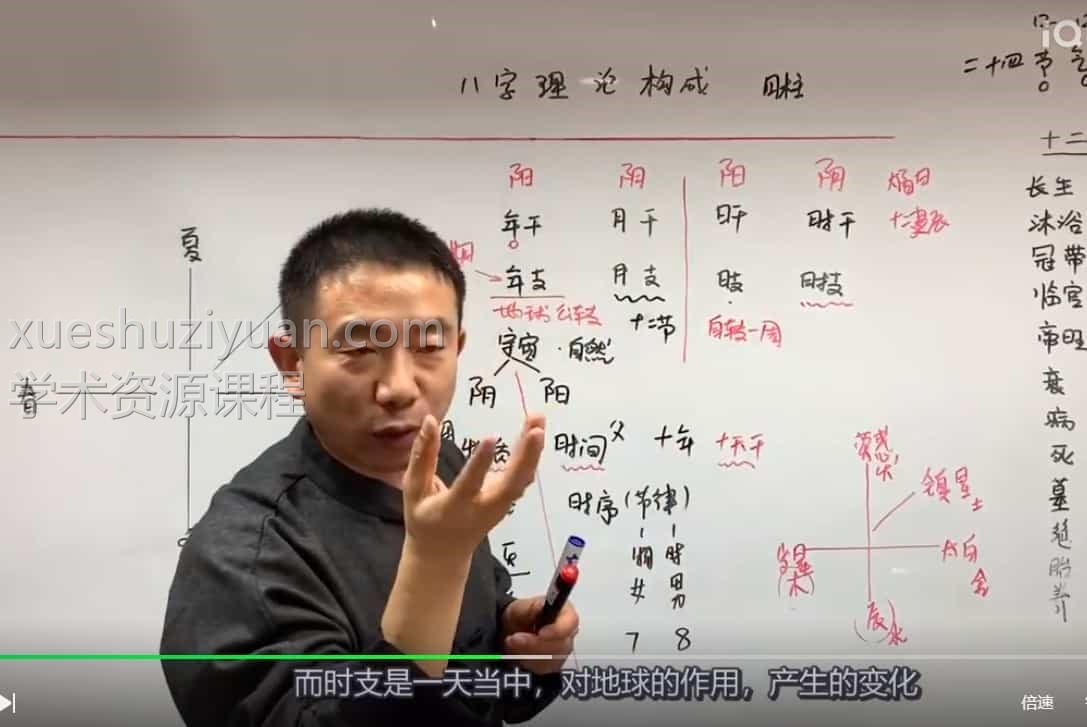 iQ
八字理论构成 四柱
二十四节气
十二
阳 阴 阳 阴
年干 月干 日干 时干
年支 月支 日支 时支
地球公转
十二节
自转一周
宇宙·自然
阴 阳
时间 父 十年 十天干
时序(节律)
女 男
7 8
夏
春
长生
沐浴
冠带
临官
帝旺
衰
病
死
墓
绝
胎
养
荧惑
火
镇星
土
木
太白
金
辰
水
xueshuziyuan.com
学术资源课程
而时支是一天当中，对地球的作用，产生的变化
倍速